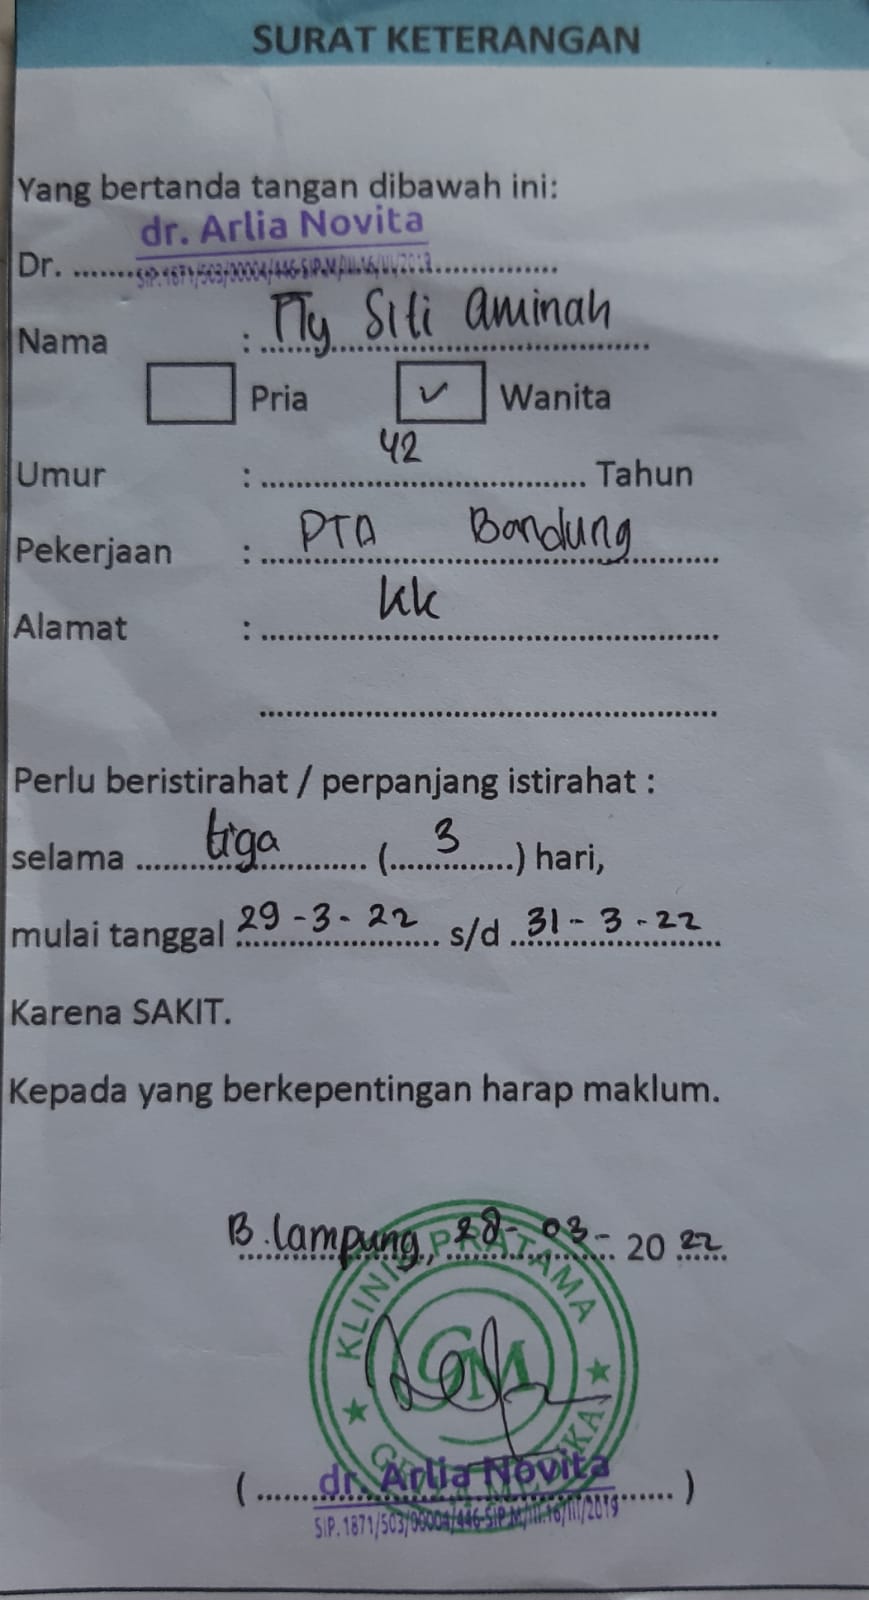 SURAT KETERANGAN
Yang bertanda tangan dibawah ini:
dr. Arlia Novita
Dr. ............................................
SIP.1871/503/00004/446-SIP.M/III.16/III/2019
Nama : Siti Aminah
Pria ✓ Wanita
Umur : 42 Tahun
Pekerjaan : PTA Bandung
Alamat : kk
Perlu beristirahat / perpanjang istirahat :
selama tiga (3) hari,
mulai tanggal 29-3-22 s/d 31-3-22
Karena SAKIT.
Kepada yang berkepentingan harap maklum.
B.lampung, 28-03-2022
KLINIK PRATAMA
GM
(dr. Arlia Novita)
SIP.1871/503/00004/446-SIP.M/III.16/III/2019